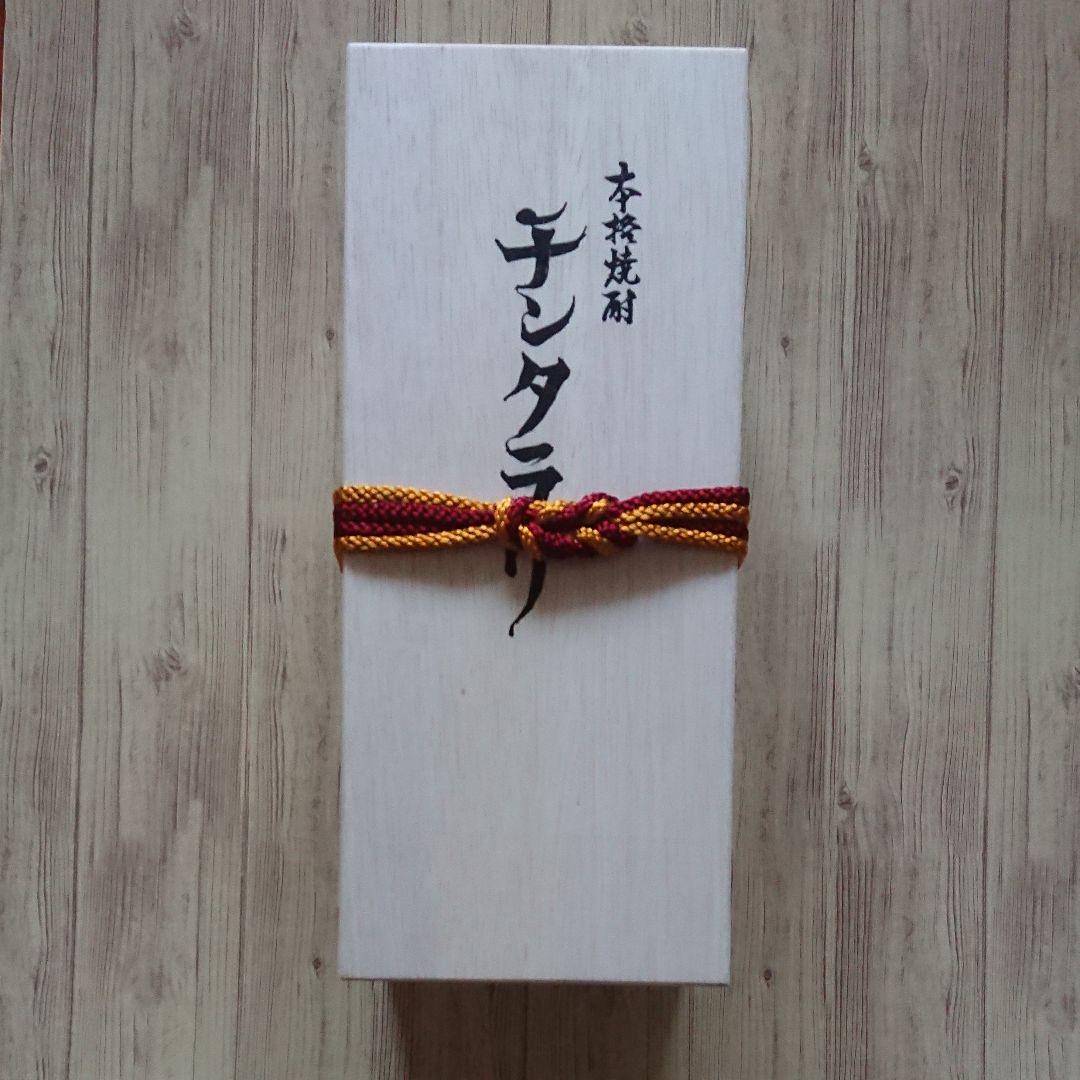 本格焼酎
チンタラリ